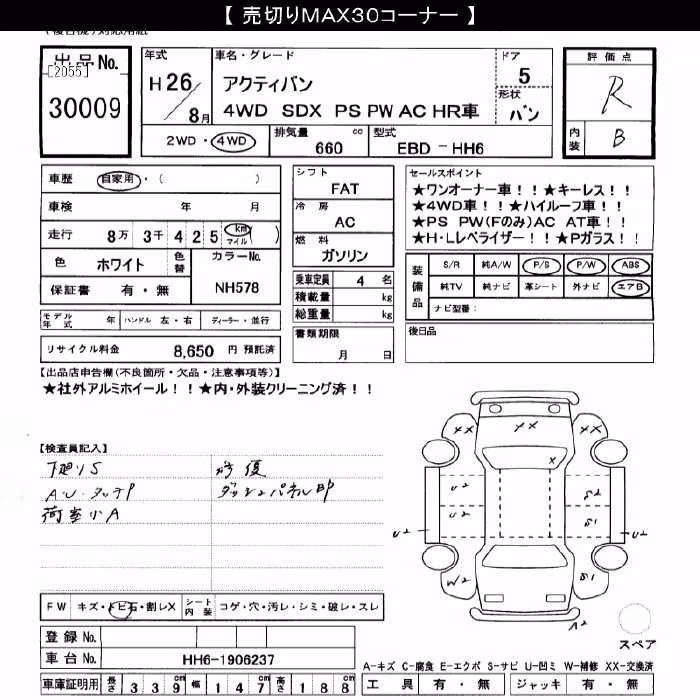 【 売切りMAX30コーナー 】
出品No.
[2055]
30009
年式
H26/8月
車名・グレード
アクティバン
4WD SDX PS PW AC HR車
ドア
5
形状
バン
2WD・4WD
排気量 660 cc
型式 EBD-HH6
評価点
R
内装 B
車歴 自家用・( )
車検 年 月
走行 8万 3千 4 2 5 km マイル ( )
色 ホワイト 色替
カラーNo.
NH578
保証書 有・無
モデル年式 年 ハンドル 左・右 ディーラー・並行
リサイクル料金 8,650 円 預託済
シフト
FAT
冷房
AC
燃料
ガソリン
乗車定員 4 名
積載量 kg
総重量 kg
書類期限
月 日
セールスポイント
★ワンオーナー車!!★キーレス!!
★4WD車!!★ハイルーフ車!!
★PS PW(Fのみ)AC AT車!!
★H・Lレベライザー!!★Pガラス!!
装備品
S/R 純A/W P/S P/W ABS
純TV 純ナビ 革シート 外ナビ エアB
ナビ型番:
後日品
【出品店申告欄(不良箇所・欠品・注意事項等)】
★社外アルミホイール!!★内・外装クリーニング済!!
【検査員記入】
下廻りS 修復
AU・タッチP ダッシュパネル凹
荷室小A
XX XX XX
X
U2 S2
U2 S1
U2 U2
W2 S1
A2
スペア
FW キズ・トビ石・割レX シート内装 コゲ・穴・汚レ・シミ・破レ・スレ
登録No.
車台No. HH6-1906237
車庫証明用 長さ 3 3 9 cm 幅 1 4 7 cm 高さ 1 8 8 cm
A-キズ C-腐食 E-エクボ S-サビ U-凹ミ W-補修 XX-交換済
工具 有・無 ジャッキ 有・無